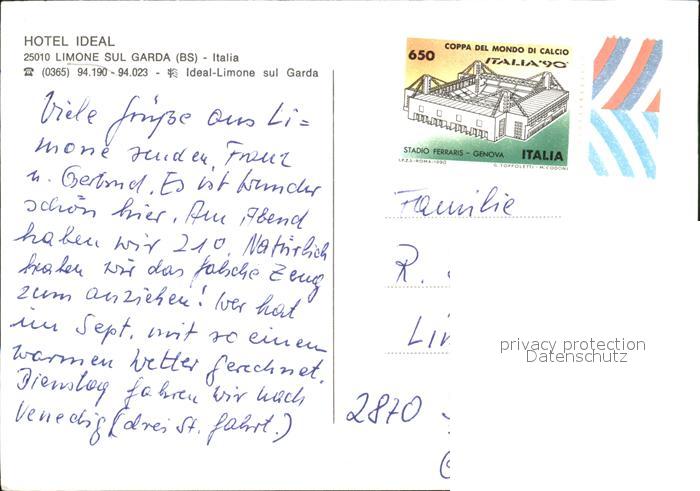 HOTEL IDEAL
25010 LIMONE SUL GARDA (BS) - Italia
☎ (0365) 94.190 - 94.023 - Ideal-Limone sul Garda
Viele Grüße aus Li=
mone senden, Franz
u. Gertrud. Es ist wunder
schön hier. Am Abend
haben wir 21°. Natürlich
haben wir das falsche Zeug
zum anziehen! Wer hat
im Sept. mit so einem
warmen Wetter gerechnet.
Dienstag fahren wir nach
Venedig (drei St. Fahrt.)
650
COPPA DEL MONDO DI CALCIO
ITALIA '90
STADIO FERRARIS - GENOVA
ITALIA
I.P.Z.S. - ROMA - 1990
G. TOFFOLETTI - M. CODONI
Familie
R.
2870
privacy protection
Datenschutz